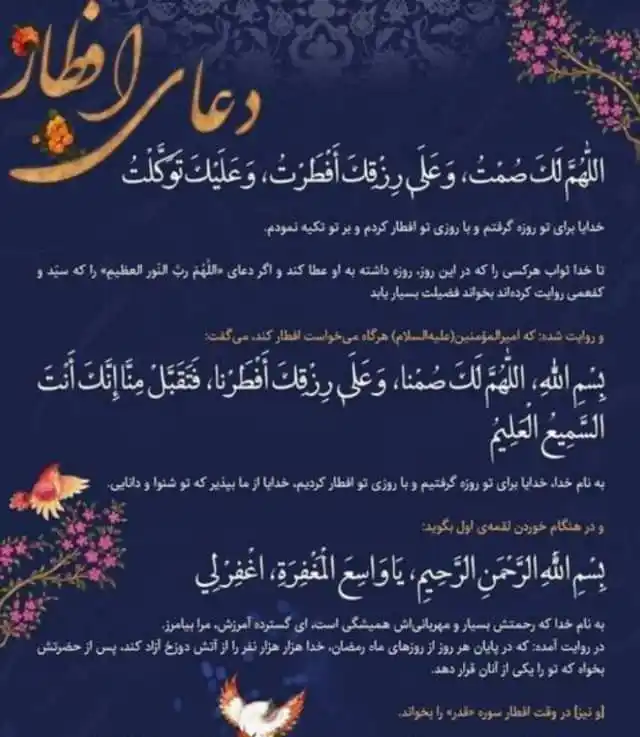 دعای افطار
اللّٰهُمَّ لَكَ صُمْتُ، وَعَلَىٰ رِزْقِكَ أَفْطَرْتُ، وَعَلَيْكَ تَوَكَّلْتُ
خدایا برای تو روزه گرفتم و با روزی تو افطار کردم و بر تو تکیه نمودم.
تا خدا ثواب هرکسی را که در این روز، روزه داشته به او عطا کند و اگر دعای «اللّٰهُمَّ ربَّ النّور العظیم» را که سیّد و
کفعمی روایت کرده‌اند بخواند فضیلت بسیار یابد
و روایت شده: که امیرالمؤمنین(علیه‌السلام) هرگاه می‌خواست افطار کند، می‌گفت:
بِسْمِ اللّٰهِ، اللّٰهُمَّ لَكَ صُمْنا، وَعَلَىٰ رِزْقِكَ أَفْطَرْنا، فَتَقَبَّلْ مِنَّا إِنَّكَ أَنْتَ
السَّمِيعُ الْعَلِيمُ
به نام خدا، خدایا برای تو روزه گرفتیم و با روزی تو افطار کردیم، خدایا از ما بپذیر که تو شنوا و دانایی.
و در هنگام خوردن لقمه‌ی اول بگوید:
بِسْمِ اللّٰهِ الرَّحْمَنِ الرَّحِيمِ، يَا وَاسِعَ الْمَغْفِرَةِ، اغْفِرْ لِي
به نام خدا که رحمتش بسیار و مهربانی‌اش همیشگی است، ای گسترده آمرزش، مرا بیامرز.
در روایت آمده: که در پایان هر روز از روزهای ماه رمضان، خدا هزار هزار نفر را از آتش دوزخ آزاد کند، پس از حضرتش
بخواه که تو را یکی از آنان قرار دهد.
[و نیز] در وقت افطار سوره «قدر» را بخواند.